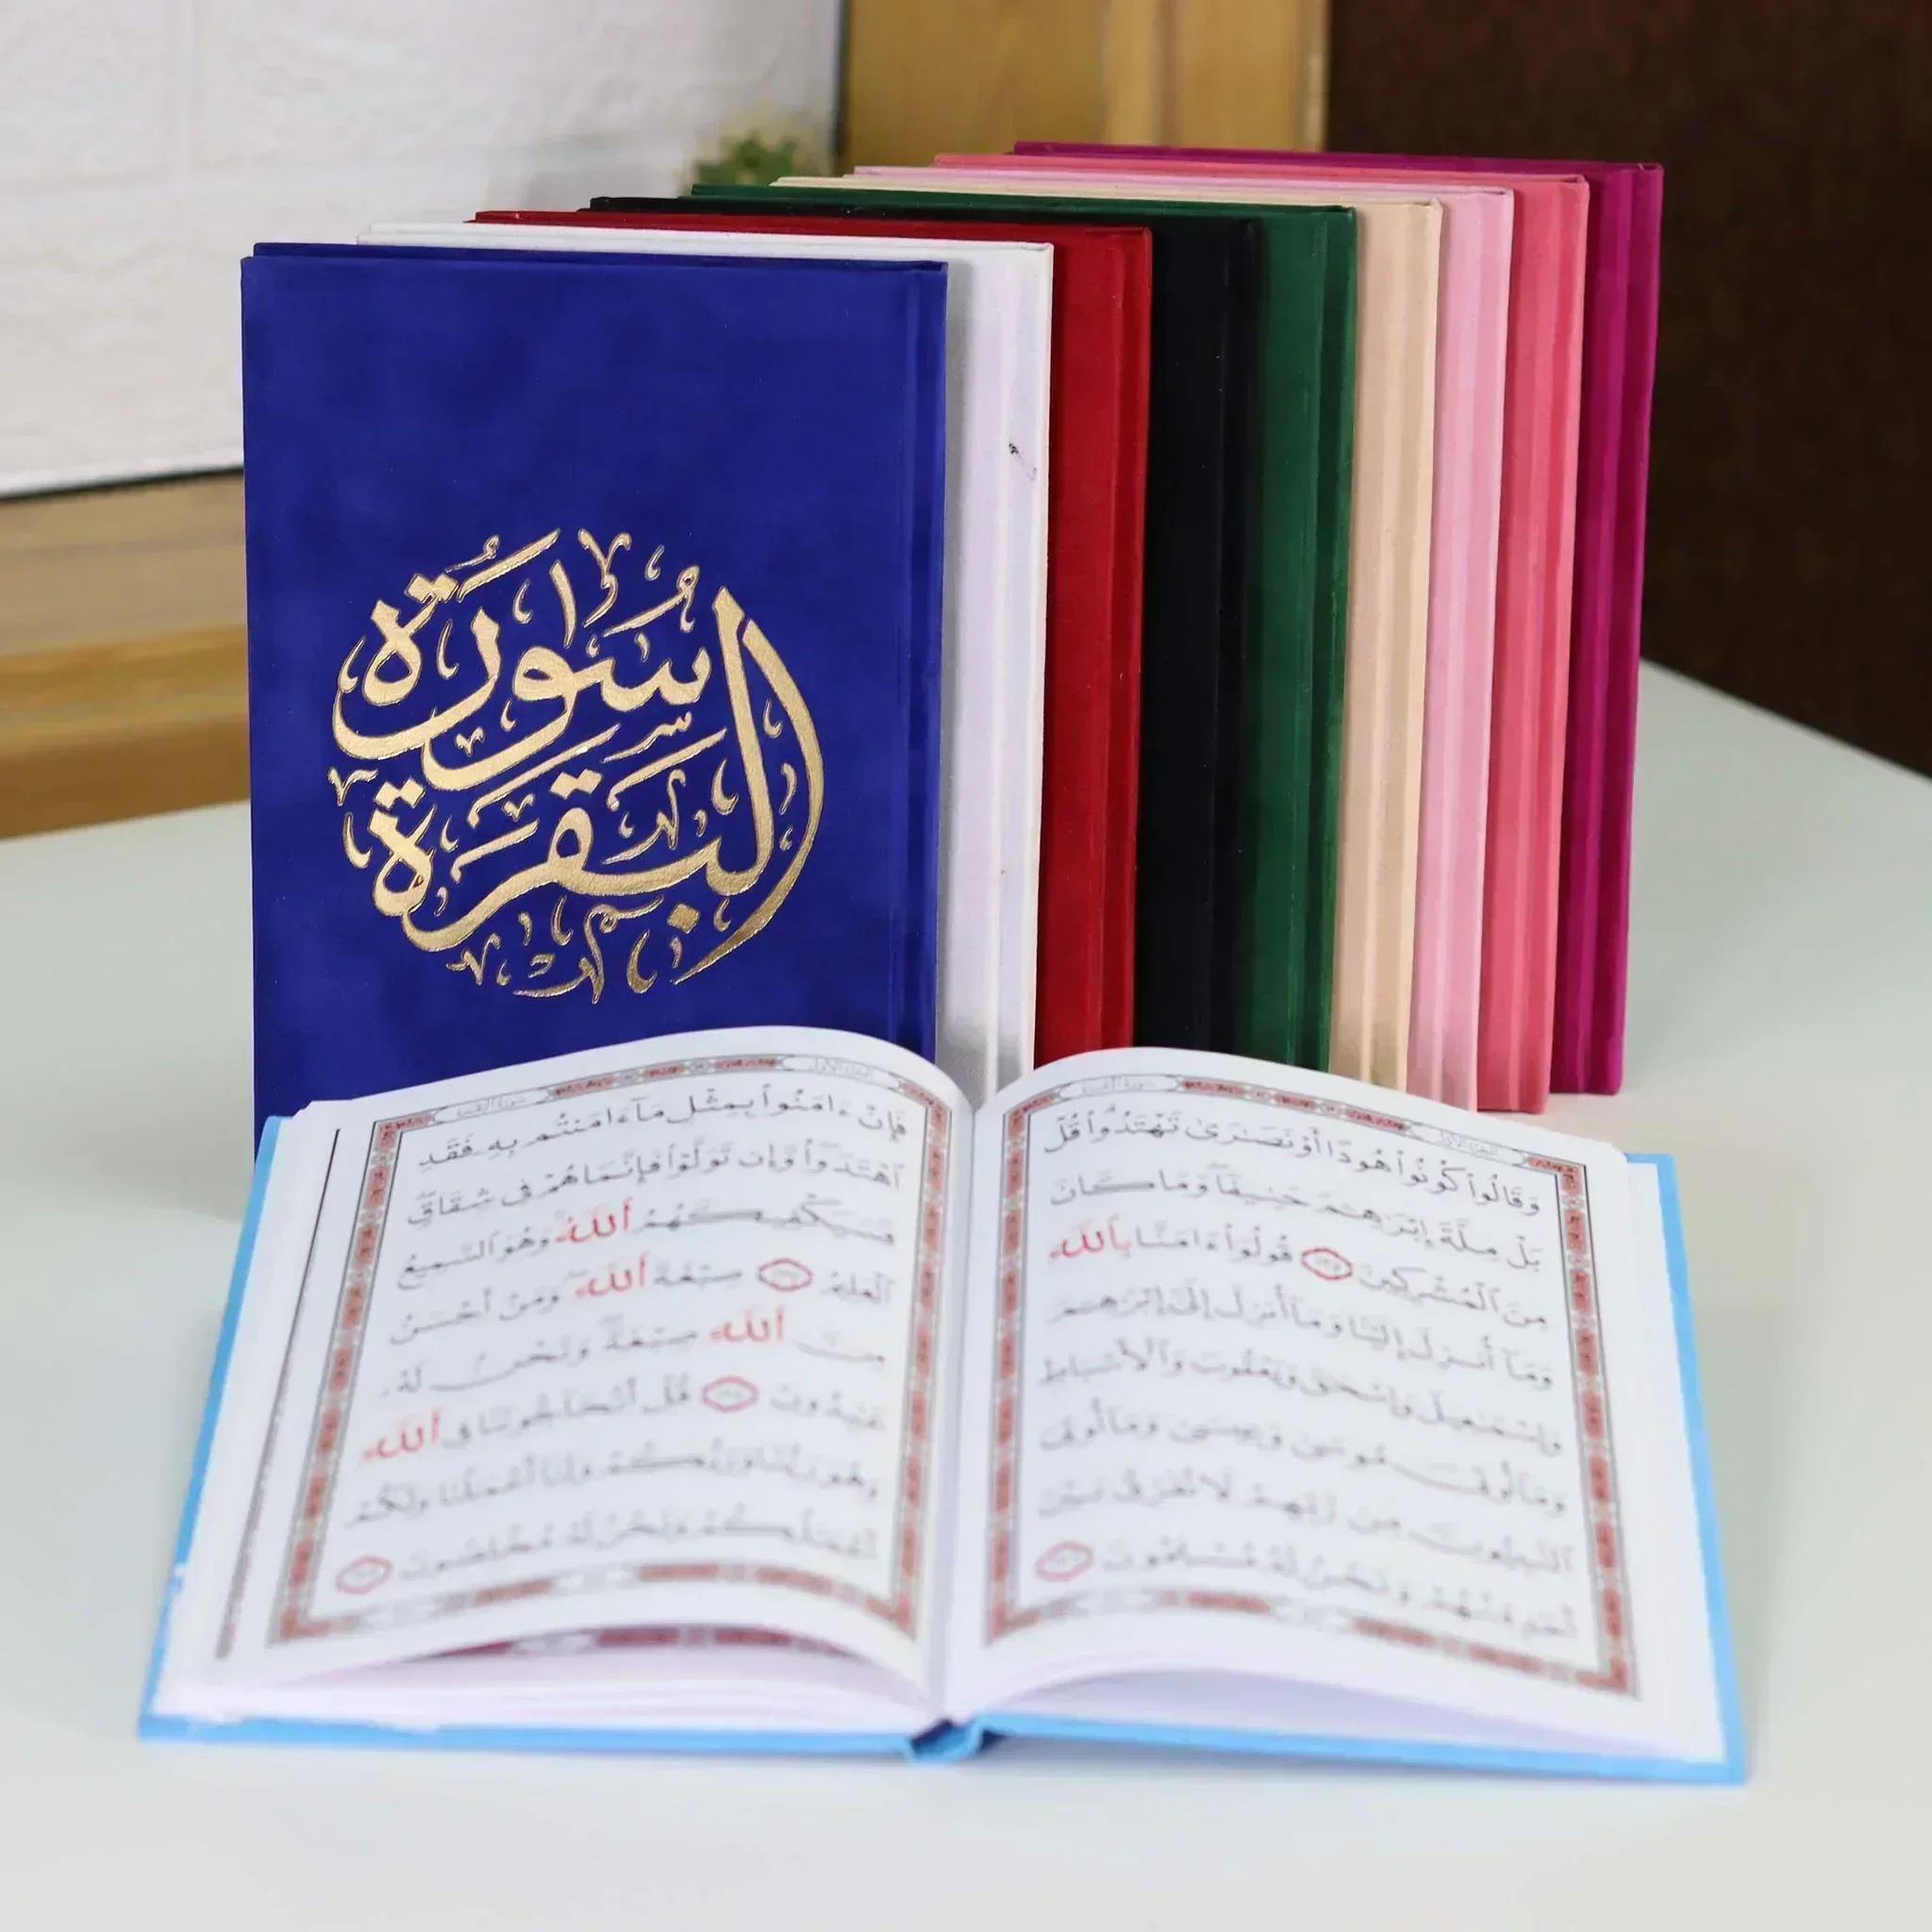 سُورَةُ
البَقَرَة
سورة البقرة
وَقَالُوا۟ كُونُوا۟ هُودًا أَوْ نَصَٰرَىٰ تَهْتَدُوا۟ ۗ قُلْ
بَلْ مِلَّةَ إِبْرَٰهِـۧمَ حَنِيفًا ۖ وَمَا كَانَ
مِنَ ٱلْمُشْرِكِينَ ١٣٥ قُولُوٓا۟ ءَامَنَّا بِٱللَّهِ
وَمَآ أُنزِلَ إِلَيْنَا وَمَآ أُنزِلَ إِلَىٰٓ إِبْرَٰهِـۧمَ
وَإِسْمَٰعِيلَ وَإِسْحَٰقَ وَيَعْقُوبَ وَٱلْأَسْبَاطِ
وَمَآ أُوتِىَ مُوسَىٰ وَعِيسَىٰ وَمَآ أُوتِىَ
ٱلنَّبِيُّونَ مِن رَّبِّهِمْ لَا نُفَرِّقُ بَيْنَ
أَحَدٍ مِّنْهُمْ وَنَحْنُ لَهُۥ مُسْلِمُونَ ١٣٦
سورة البقرة
الجزء الأول
فَإِنْ ءَامَنُوا۟ بِمِثْلِ مَآ ءَامَنتُم بِهِۦ فَقَدِ
ٱهْتَدَوا۟ ۖ وَّإِن تَوَلَّوْا۟ فَإِنَّمَا هُمْ فِى شِقَاقٍ ۖ
فَسَيَكْفِيكَهُمُ ٱللَّهُ ۚ وَهُوَ ٱلسَّمِيعُ
ٱلْعَلِيمُ ١٣٧ صِبْغَةَ ٱللَّهِ ۖ وَمَنْ أَحْسَنُ
مِنَ ٱللَّهِ صِبْغَةً ۖ وَنَحْنُ لَهُۥ
عَٰبِدُونَ ١٣٨ قُلْ أَتُحَآجُّونَنَا فِى ٱللَّهِ
وَهُوَ رَبُّنَا وَرَبُّكُمْ وَلَنَآ أَعْمَٰلُنَا وَلَكُمْ
أَعْمَٰلُكُمْ وَنَحْنُ لَهُۥ مُخْلِصُونَ ١٣٩